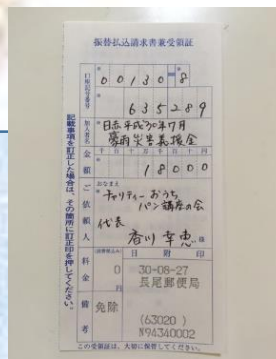 振替払込請求書兼受領証
口座記号番号
00130=8
635289
加入者名
日赤平成30年7月
豪雨災害義援金
金額
千 百 十 万 千 百 十 円
18000
ご依頼人
おなまえ
チャリティーおうち
パン講座の会
代表
香川 幸恵 様
料金
(消費税込み)
0 円
日附印
30-08-27
長尾郵便局
備考
免除
(63020)
N94340002
記載事項を訂正した場合は、その箇所に訂正印を押してください。
この受領証は、大切に保管してください。